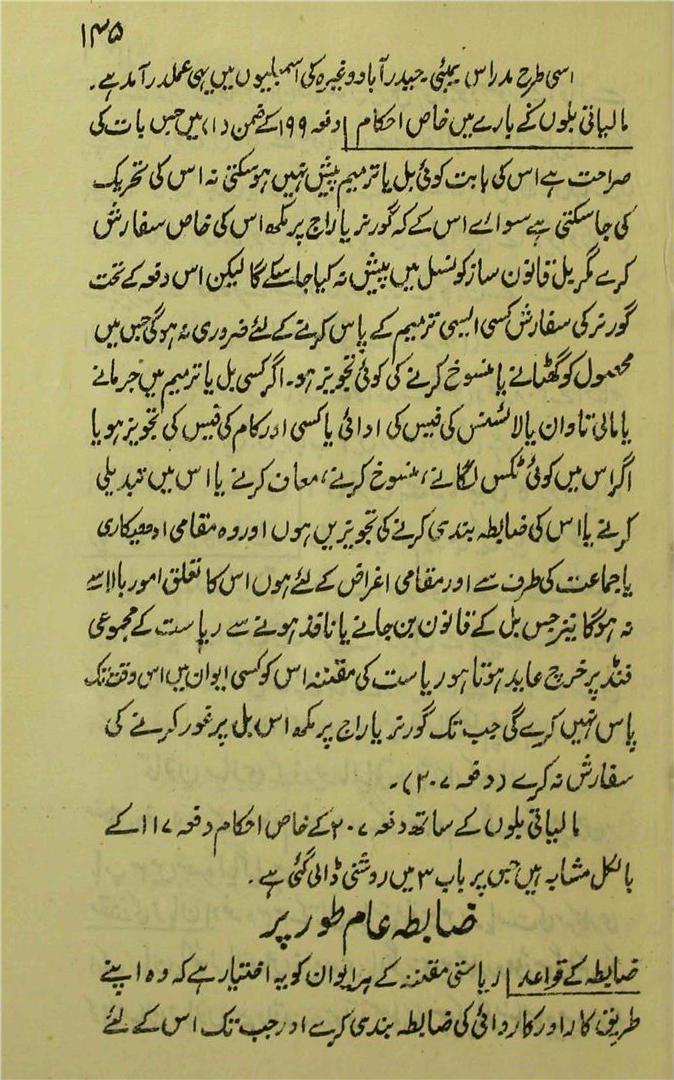 ۱۳۵
اسی طرح مدراس بمبئی۔ حیدرآباد وغیرہ کی اسمبلیوں میں یہی عملدرآمد ہے۔
مالیاتی بلوں کے بارے میں خاص احکام | دفعہ ۱۹۹ کے ضمن (۱) میں جس بات کی
صراحت ہے اس کی بابت کوئی بل یا ترمیم پیش نہیں ہو سکتی نہ اس کی تحریک
کی جا سکتی ہے سوائے اس کے کہ گورنر یا راج پرمکھ اس کی خاص سفارش
کرے مگر بل قانون ساز کونسل میں پیش نہ کیا جا سکے گا لیکن اس دفعہ کے تحت
گورنر کی سفارش کسی ایسی ترمیم کے پاس کرنے کے لئے ضروری نہ ہوگی جس میں
محصول کو گھٹانے یا منسوخ کرنے کی کوئی تجویز ہو۔ اگر کسی بل یا ترمیم میں جرمانے
یا مالی تاوان یا لائسنس کی فیس کی ادائی یا کسی اور کام کی فیس کی تجویز ہو یا
اگر اس میں کوئی ٹکس لگانے، منسوخ کرنے، معاف کرنے یا اس میں تبدیلی
کرنے یا اس کی ضابطہ بندی کرنے کی تجویزیں ہوں اور وہ مقامی ادھیکاری
یا جماعت کی طرف سے اور مقامی اغراض کے لئے ہوں اس کا تعلق امور بالا سے
نہ ہوگا نیز جس بل کے قانون بن جانے یا نافذ ہونے سے ریاست کے مجموعی
فنڈ پر خرچ عاید ہوتا ہو ریاست کی مقننہ اس کو کسی ایوان میں اس وقت تک
پاس نہیں کرے گی جب تک گورنر یا راج پرمکھ اس بل پر غور کرنے کی
سفارش نہ کرے (دفعہ ۲۰۷)۔
مالیاتی بلوں کے ساتھ دفعہ ۲۰۷ کے خاص احکام دفعہ ۱۱۷ کے
بالکل مشابہ ہیں جس پر باب ۳ میں روشنی ڈالی گئی ہے۔
ضابطہ عام طور پر
ضابطہ کے قواعد | ریاستی مقننہ کے ہر ایوان کو یہ اختیار ہے کہ وہ اپنے
طریق کار اور کارروائی کی ضابطہ بندی کرے اور جب تک اس کے لئے